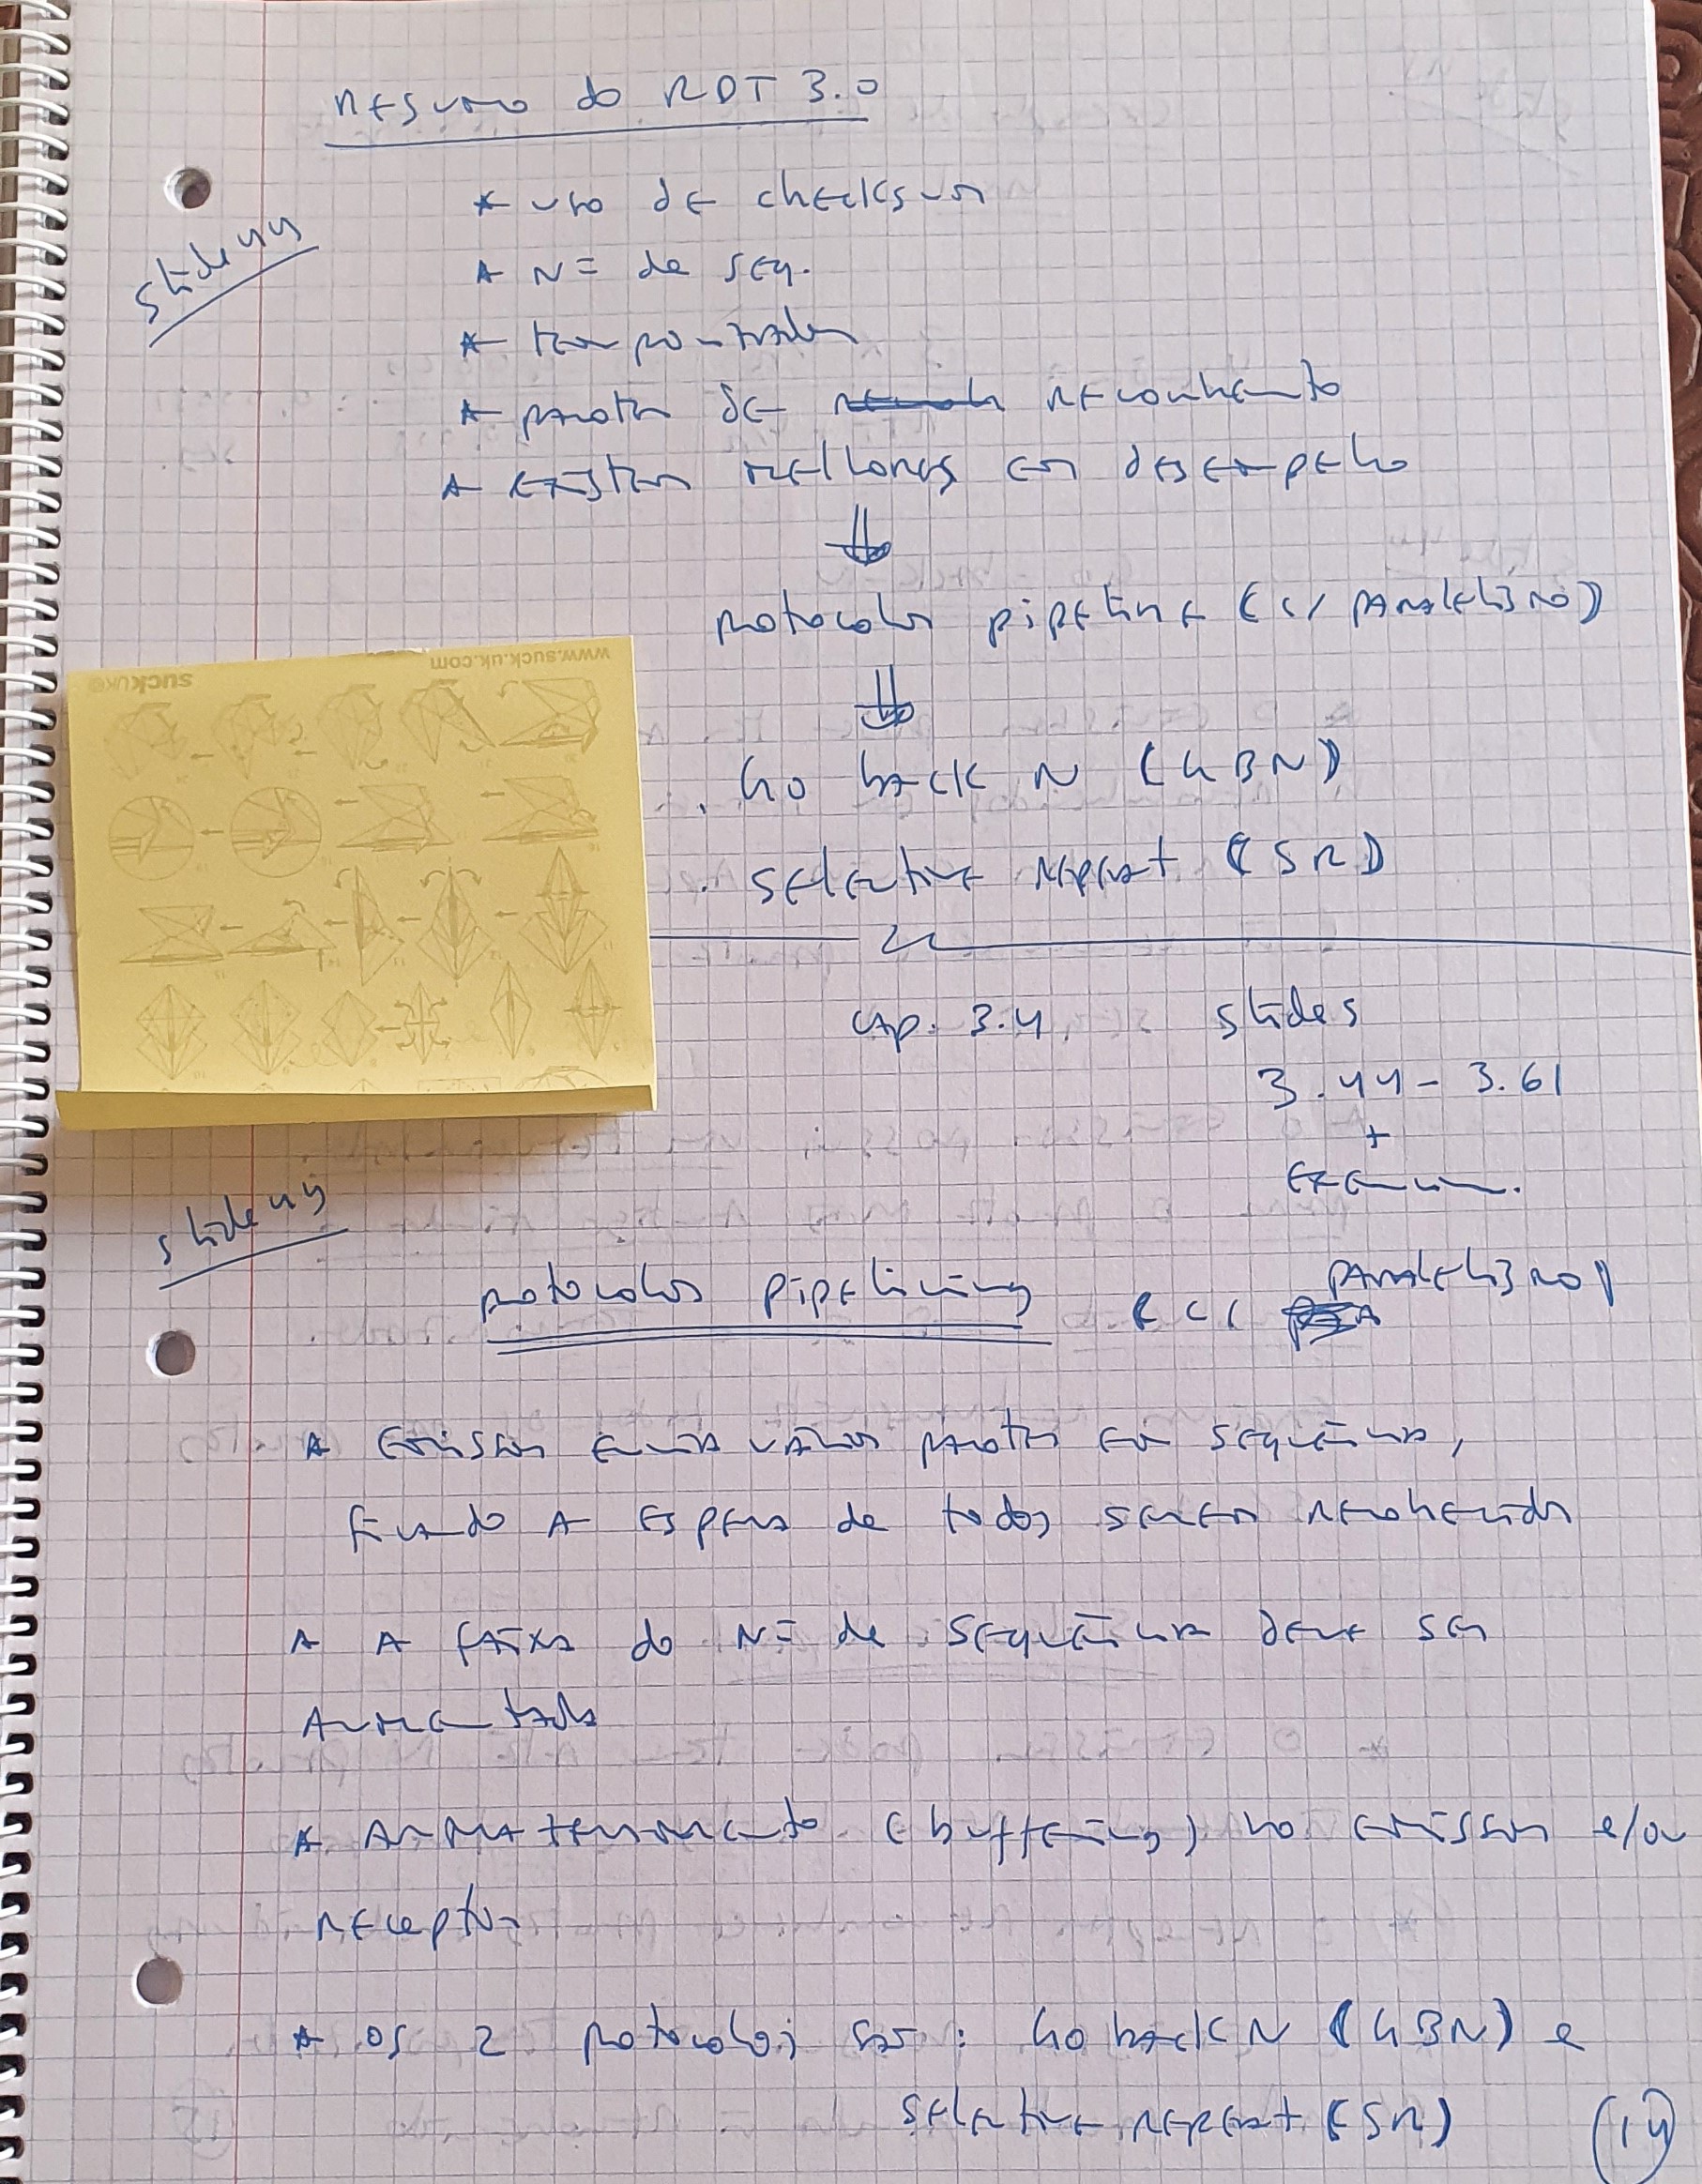 Resumo do RDT 3.0
* uso de checksum
slide 44
* Nº de seq.
* temporizador
* pacotes de reconhecimento
* existem melhorias em desempenho
⇓
protocolos pipeline (c/ paralelismo)
⇓
www.suck.uk.com
suckuk®
. Go back N (GBN)
. Selective Repeat (SR)
cap. 3.4 slides
3.44 - 3.61
+
slide 44
protocolos pipelining (c/ paralelismo)
* Emissor envia vários pacotes em sequência,
ficando a espera de todos serem reconhecidos
* A faixa do Nº de sequência deve ser
aumentada
* Armazenamento (buffering) no emissor e/ou
receptor
* os 2 protocolos são: Go back N (GBN) e
Selective repeat (SR)
(14)